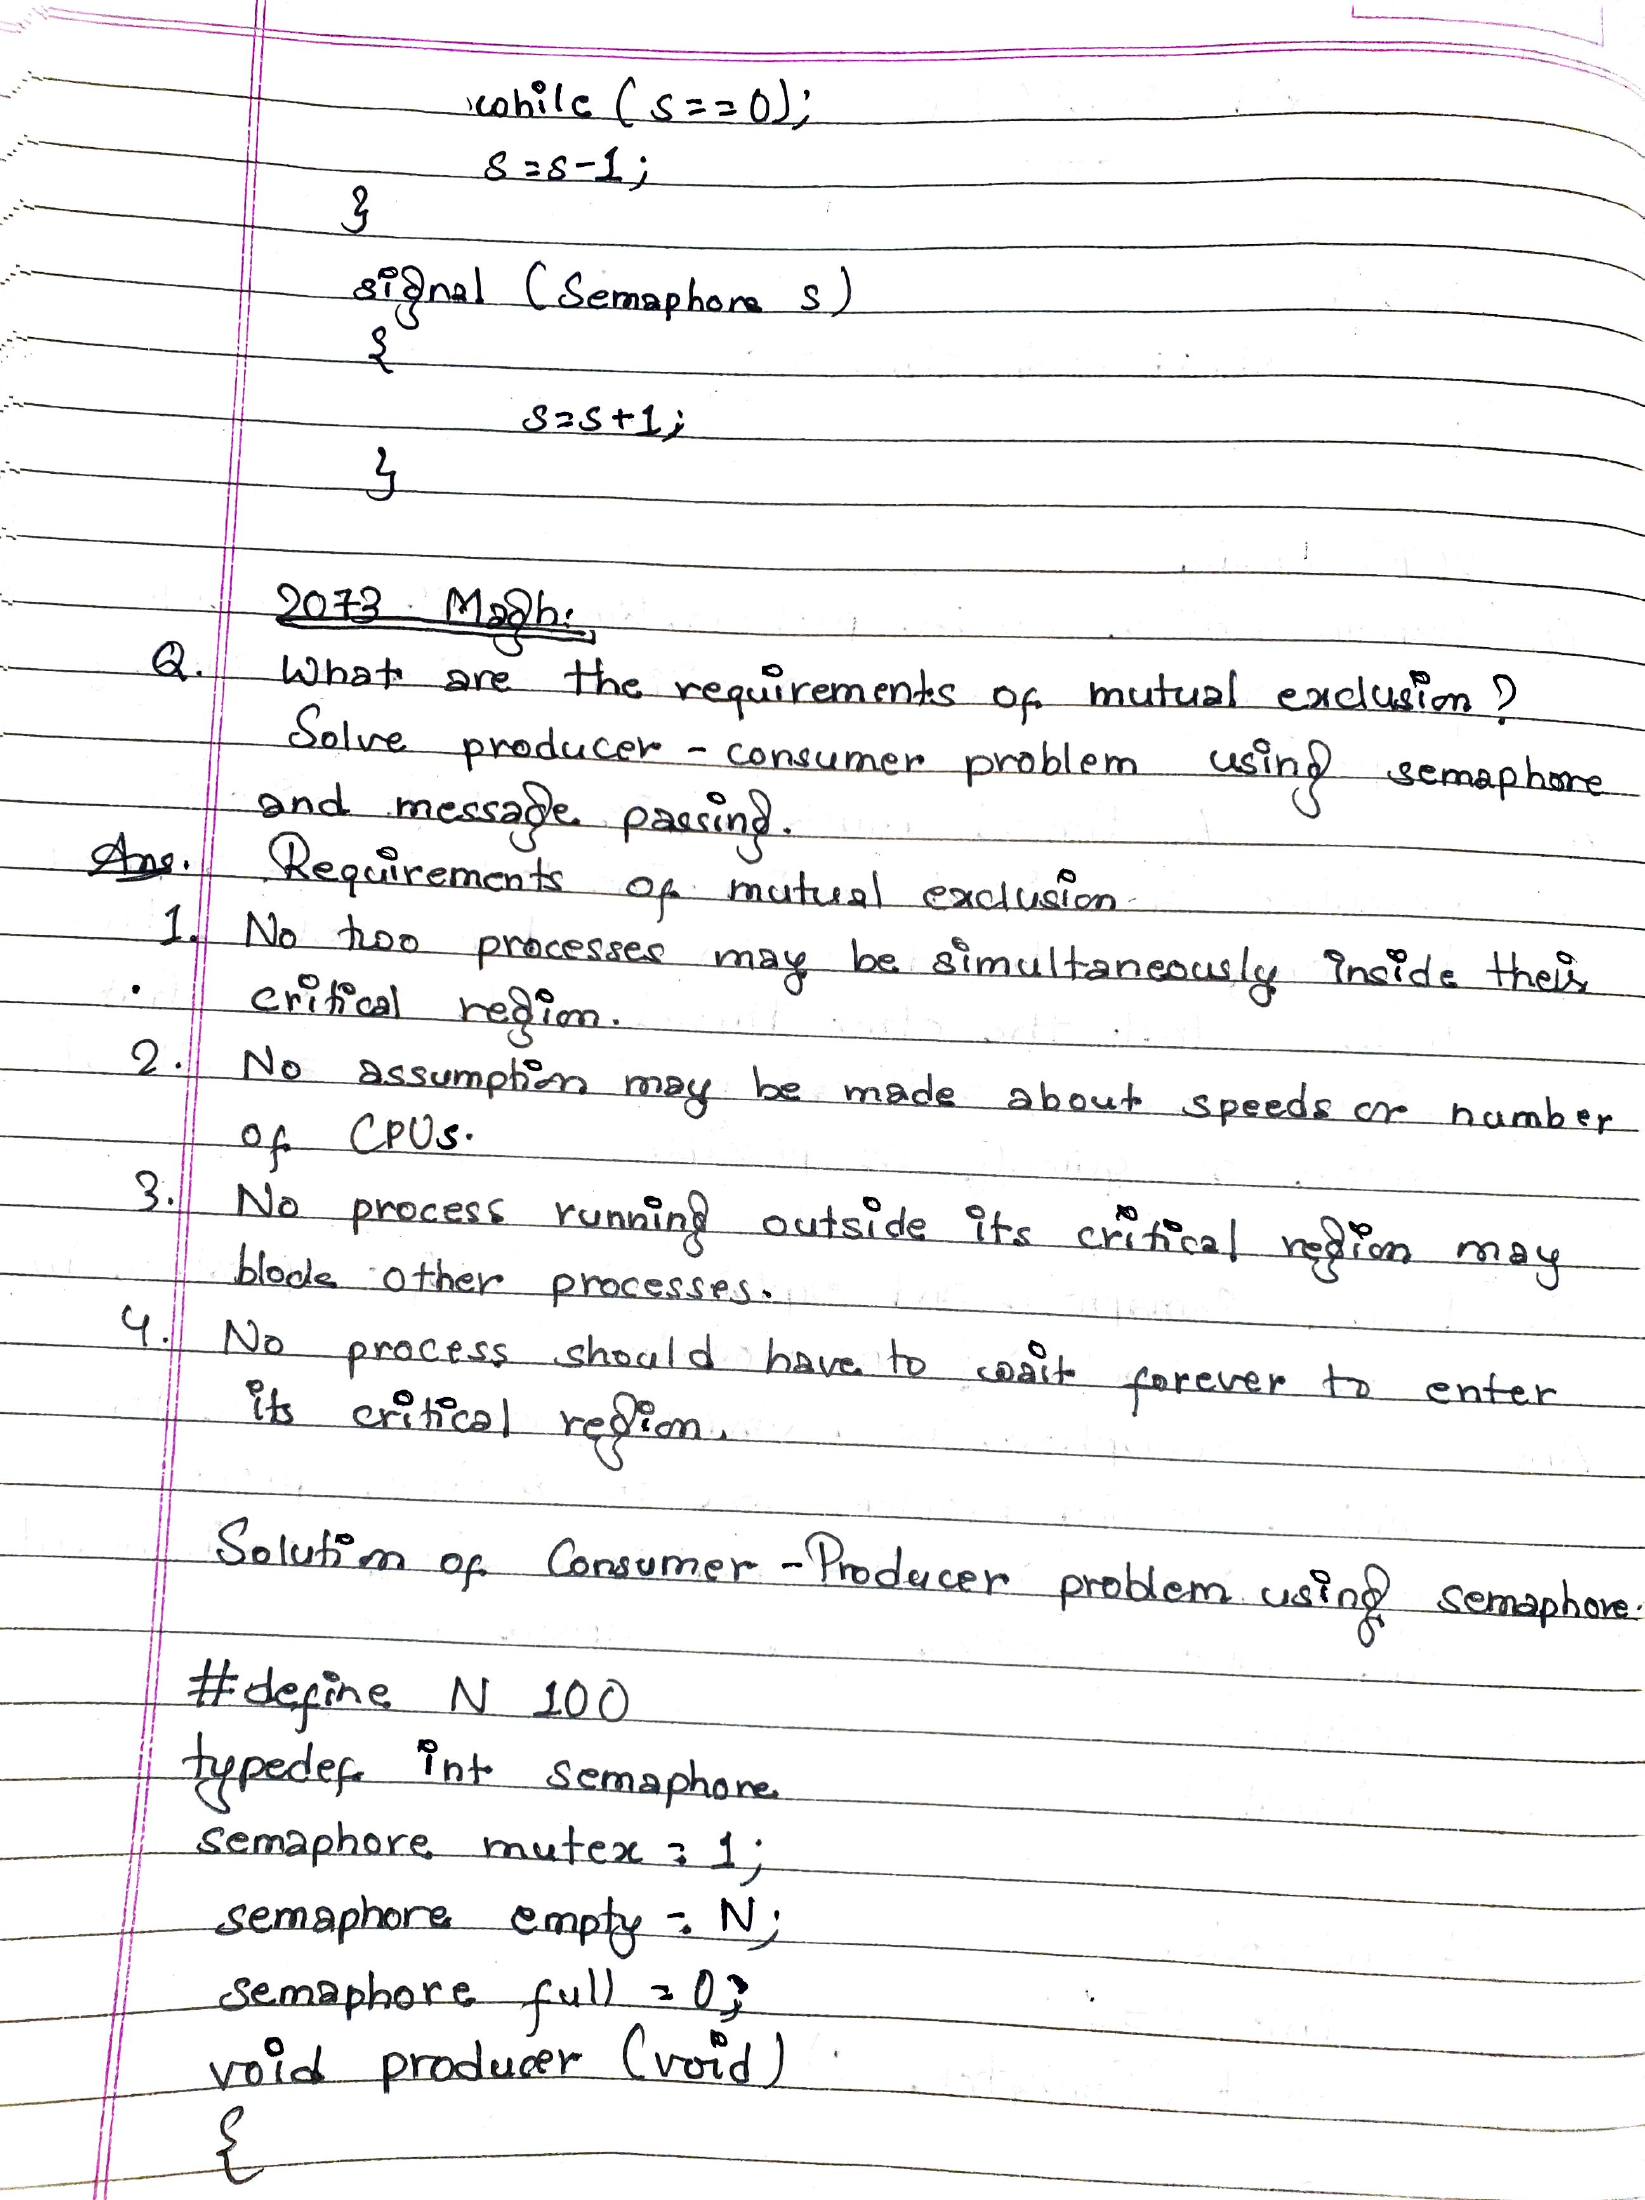 while (s==0);
s=s-1;
}
signal (Semaphore s)
{
s=s+1;
}
2073 Magh:
Q. What are the requirements of mutual exclusion?
Solve producer - consumer problem using semaphore
and message passing.
Ans. Requirements of mutual exclusion
1. No two processes may be simultaneously inside their
critical region.
2. No assumption may be made about speeds or number
of CPUs.
3. No process running outside its critical region may
block other processes.
4. No process should have to wait forever to enter
its critical region.
Solution of Consumer - Producer problem using semaphore.
#define N 100
typedef int semaphore
semaphore mutex = 1;
semaphore empty = N;
semaphore full = 0;
void producer (void)
{